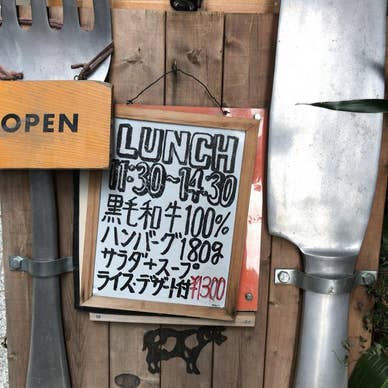 OPEN
LUNCH
11:30~14:30
黒毛和牛100%
ハンバーグ180g
サラダ+スープ
ライス・デザート付¥1300